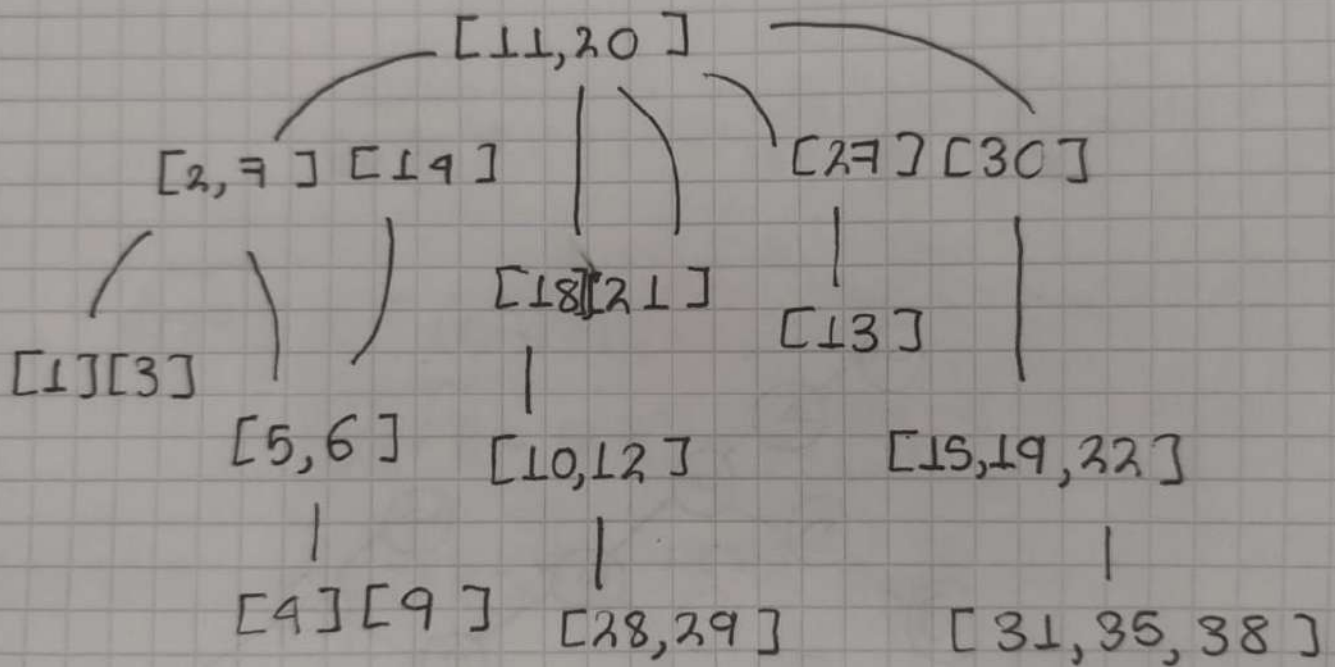 [11,20]
[2,7] [14] [27] [30]
[18][21]
[13]
[1][3]
[5,6] [10,12] [15,19,22]
[4][9] [28,29] [31,35,38]